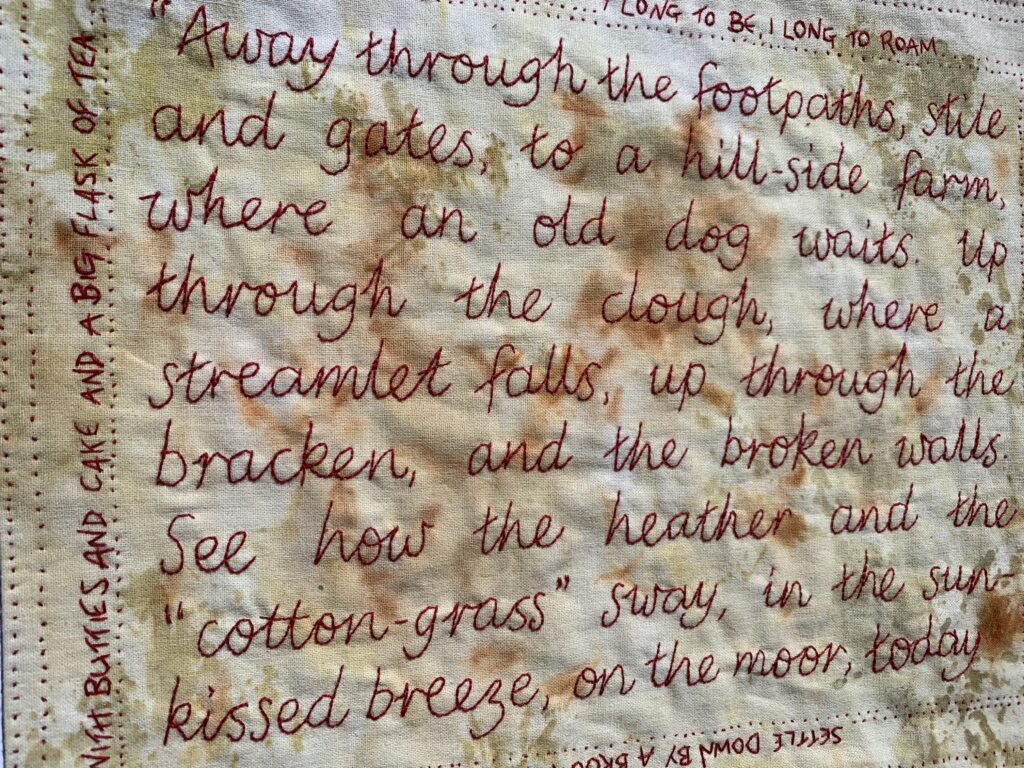 I LONG TO BE, I LONG TO ROAM
"Away through the footpaths, stile
and gates, to a hill-side farm,
where an old dog waits. Up
through the clough, where a
streamlet falls, up through the
bracken, and the broken walls.
See how the heather and the
"cotton-grass" sway, in the sun-
kissed breeze, on the moor, today
WITH BUTTIES AND CAKE AND A BIG FLASK OF TEA
SETTLE DOWN BY A